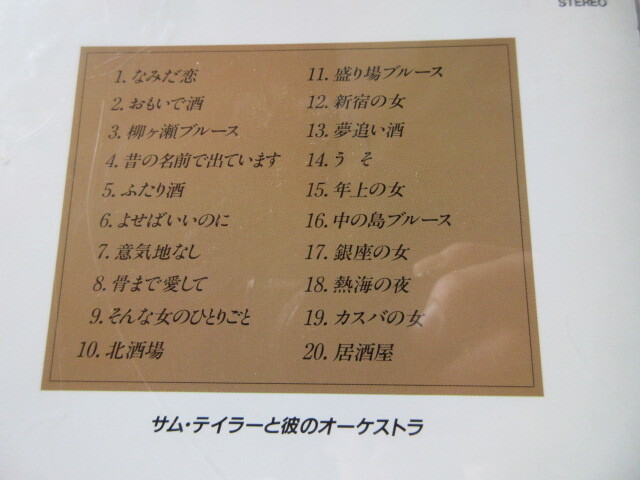 STEREO
1. なみだ恋
2. おもいで酒
3. 柳ヶ瀬ブルース
4. 昔の名前で出ています
5. ふたり酒
6. よせばいいのに
7. 意気地なし
8. 骨まで愛して
9. そんな女のひとりごと
10. 北酒場
11. 盛り場ブルース
12. 新宿の女
13. 夢追い酒
14. う そ
15. 年上の女
16. 中の島ブルース
17. 銀座の女
18. 熱海の夜
19. カスバの女
20. 居酒屋
サム・テイラーと彼のオーケストラ